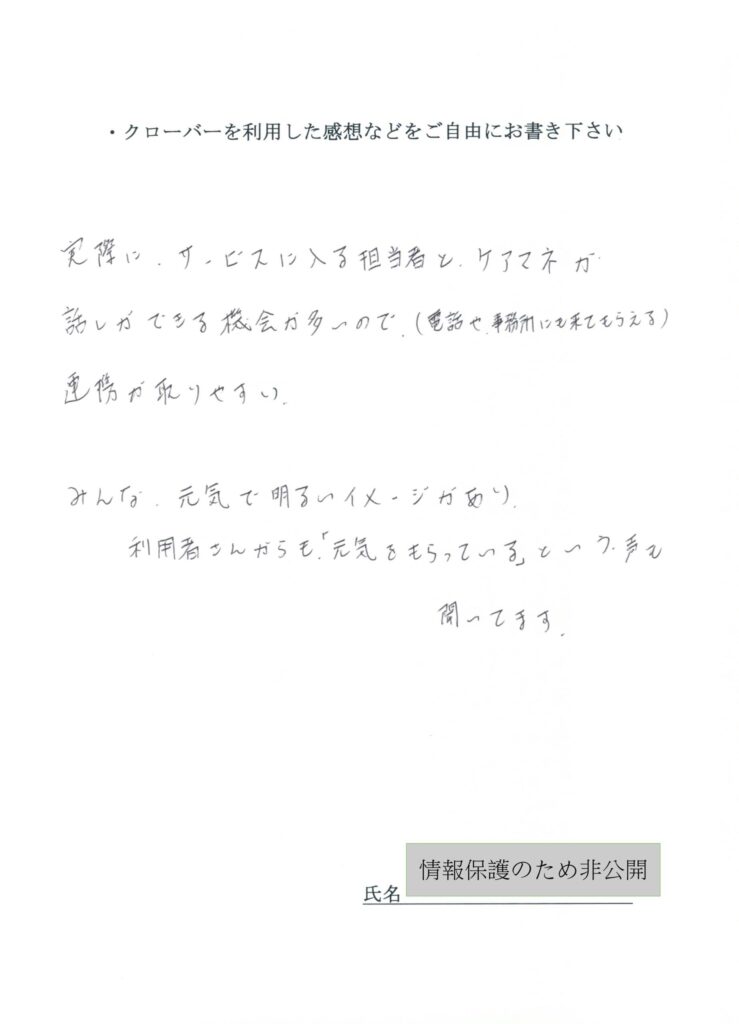 ・クローバーを利用した感想などをご自由にお書き下さい
実際に、サービスに入る担当者と、ケアマネが
話しができる機会が多いので、(電話や、事務所にも来てもらえる)
連携が取りやすい。
みんな、元気で明るいイメージがあり、
利用者さんからも、「元気をもらっている」という声も
聞いてます。
情報保護のため非公開
氏名